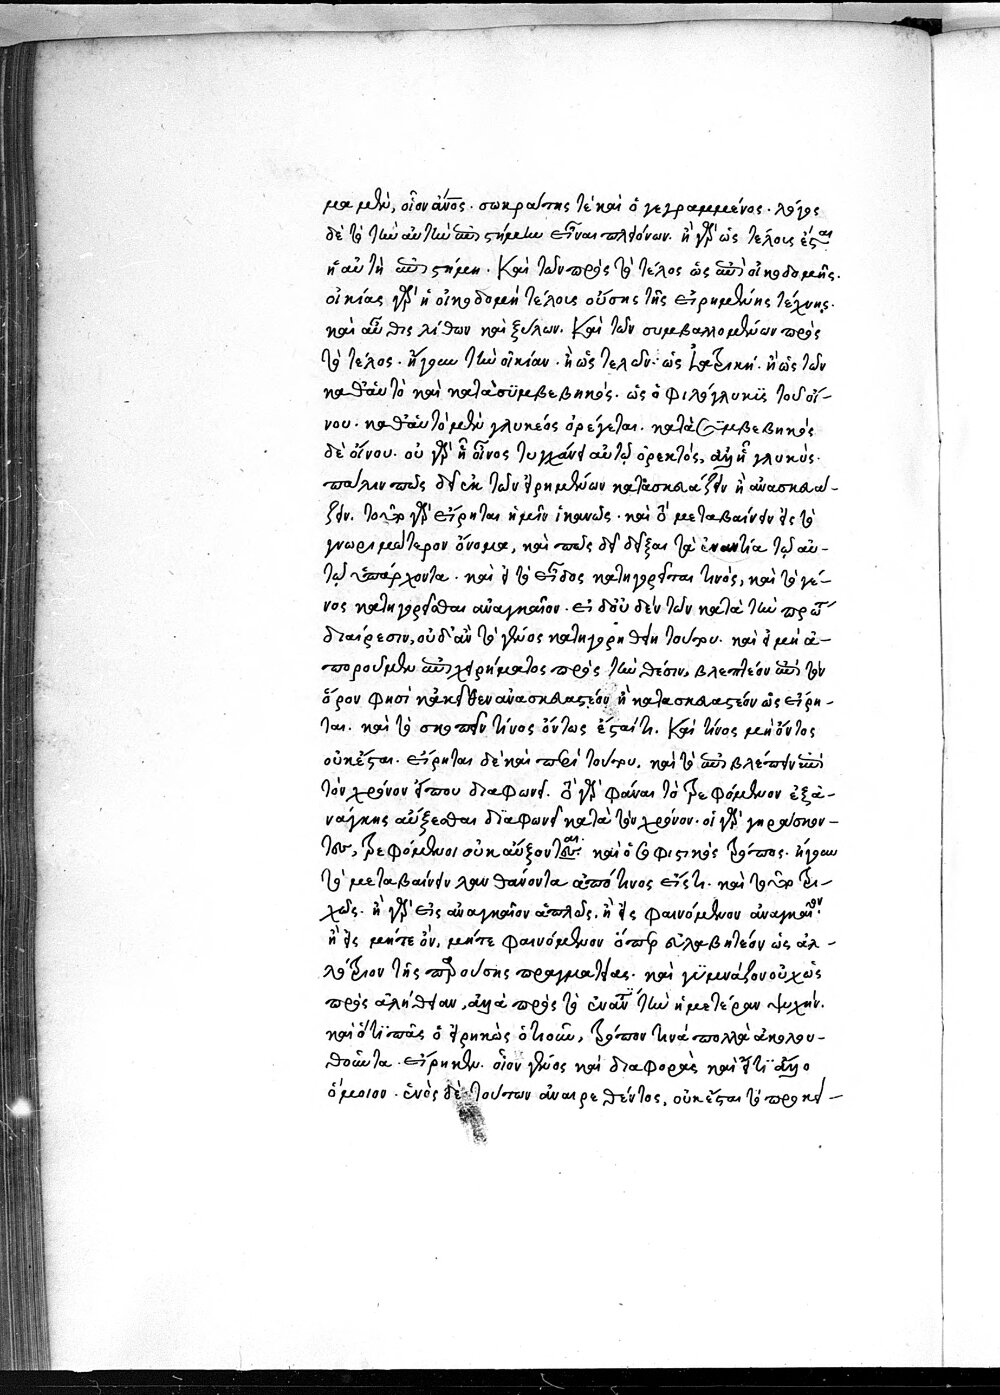 μα μὲν, οἷον ἄνος. σωκράτης τὲ καὶ ὁ γεγραμμένος. λόγος
δὲ τὸ τὴν αὐτὴν ἐπιστήμην εἶναι πλειόνων. ἢ γὰρ ὡς τέλους ἔσται
ἡ αὐτὴ ἐπιστήμη. καὶ τῶν πρὸς τὸ τέλος ὡς ἐπὶ οἰκοδομῆς.
οἰκίας γὰρ ἡ οἰκοδομὴ τέλους οὔσης τῆς εἰρημένης τέχνης.
καὶ αὖθις λίθων καὶ ξύλων. καὶ τῶν συμβαλλομένων πρὸς
τὸ τέλος. ἤγουν τὴν οἰκίαν. ἢ ὡς τελῶν. ὡς ἰατρική. ἢ ὡς τῶν
καθ' αὑτὸ καὶ κατὰ συμβεβηκός. ὡς ὁ φιλόγλυκυς τοῦ οἴ-
νου. καθ' αὑτὸ μὲν γλυκέος ὀρέγεται. κατὰ συμβεβηκὸς
δὲ οἴνου. οὐ γὰρ ᾗ οἶνος τυγχάνει αὐτῷ ὀρεκτός, ἀλλ' ᾗ γλυκύς.
πάλιν πῶς δεῖ ἐκ τῶν εἰρημένων κατασκευάζειν ἢ ἀνασκευά-
ζειν. τοῦτο γὰρ εἴρηται ἡμῖν ἱκανῶς. καὶ ὁ μεταβαίνειν εἰς τὸ
γνωριμώτερον ὄνομα, καὶ πῶς δεῖ δεῖξαι τὰ ἐναντία τῷ αὐ-
τῷ ὑπάρχοντα. καὶ εἰ τὸ εἶδος κατηγορεῖται τινός, καὶ τὸ γέ-
νος κατηγορεῖσθαι ἀναγκαῖον. εἰ δ' οὐδὲν τῶν κατὰ τὴν πρώτ
διαίρεσιν, οὐδ' ἂν τὸ γένος κατηγορηθείη τούτου. καὶ εἰ μὴ εὐ-
ποροῦμεν ἐπιχειρήματος πρὸς τὴν θέσιν, βλεπτέον ἐπὶ τὸν
ὅρον φησὶ κἀκεῖθεν ἀνασκευαστέον ἢ κατασκευαστέον ὡς εἴρη-
ται. καὶ τὸ σκοπεῖν τίνος ὄντος ἔσται τι. καὶ τίνος μὴ ὄντος
οὐκ ἔσται. εἴρηται δὲ καὶ περὶ τούτου. καὶ τὸ ἐπιβλέπειν ἐπὶ
τὸν χρόνον εἴ που διαφωνεῖ. ὁ γὰρ φάναι τὸ τρεφόμενον ἐξ ἀ-
νάγκης αὔξεσθαι διαφωνεῖ κατὰ τὸν χρόνον. οἱ γὰρ γηράσκον-
τες, τρεφόμενοι οὐκ αὔξονται. καὶ ὁ σοφιστικὸς τρόπος. ἤγουν
τὸ μεταβαίνειν λανθάνοντα ἀπό τινος εἴς τι. καὶ τοῦτο τρι-
χῶς. ἢ γὰρ εἰς ἀναγκαῖον ἁπλῶς, ἢ εἰς φαινόμενον ἀναγκαῖον.
ἢ εἰς μήτε ὂν, μήτε φαινόμενον ὅπερ εὐλαβητέον ὡς ἀλ-
λότριον τῆς παρούσης πραγματείας. καὶ γυμνάζον οὐχ ὡς
πρὸς ἀλήθειαν, ἀλλὰ πρὸς τὸ ἐναντίον τὴν ἡμετέραν ψυχήν.
καὶ ὅτι πᾶς ὁ εἰρηκὼς ὁτιοῦν, τρόπον τινὰ πολλὰ ἀκολου-
θοῦντα εἴρηκεν. οἷον γένος καὶ διαφορὰς καὶ εἴ τι ἄλλο
ὅμοιον. ἑνὸς δὲ τούτων ἀναιρεθέντος, οὐκ ἔσται τὸ προκεί-